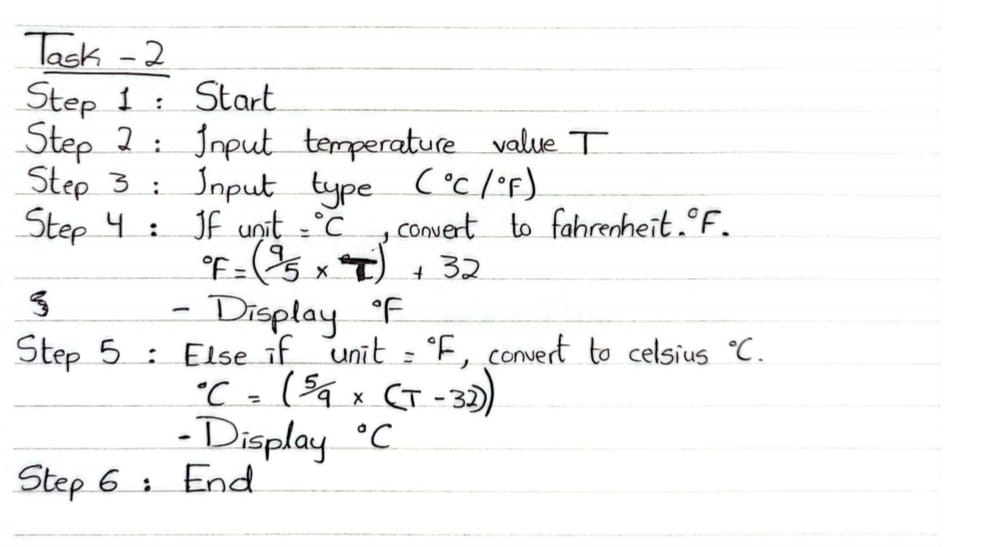 Task - 2
Step 1 : Start
Step 2 : Input temperature value T
Step 3 : Input type (°C/°F)
Step 4 : If unit = °C , convert to fahrenheit.°F.
°F = (9/5 × T) + 32
- Display °F
Step 5 : Else if unit = °F, convert to celsius °C.
°C = (5/9 × (T - 32))
- Display °C
Step 6 : End